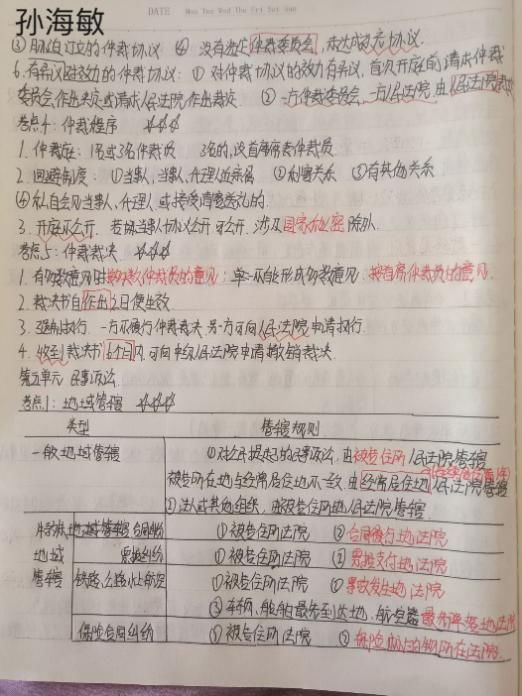 孙海敏
DATE Mon Tue Wed Thu Fri Sat Sun
③胁迫订立的仲裁协议 ④没有选定仲裁委员会,未达成补充协议.
6.有异议对效力的仲裁协议:①对仲裁协议的效力有异议,首次开庭前请求仲裁
委员会作出决定或请求人民法院作出裁定 ②一方仲裁委员会,一方人民法院,由人民法院裁定
考点4:仲裁程序 ☆☆☆
1.仲裁庭:1名或3名仲裁员 3名的,设首席仲裁员
2.回避制度:①当事人,当事人、代理人近亲属 ②利害关系 ③有其他关系
④私自会见当事人、代理人或接受请客送礼的.
3.开庭不公开.若当事人协议公开可公开.涉及国家秘密除外.
考点5:仲裁裁决 ☆☆☆
1.有分歧意见时按多数仲裁员的意见;单一不能形成多数意见:按首席仲裁员的意见.
2.裁决书自作出之日便生效
3.强制执行.一方不履行仲裁裁决 另一方可向人民法院申请执行.
4.收到裁决书6个月内可向中级人民法院申请撤销裁决.
第五单元 民事诉讼
考点1:地域管辖 ☆☆☆
类型 管辖规则
一般地域管辖 ①对公民提起的民事诉讼,由被告住所人民法院管辖
被告所在地与经常居住地不一致,由经常居住地人民法院管辖
②法人或其他组织,由被告住所地人民法院管辖.
特殊地域管辖 合同纠纷 ①被告住所法院 ②合同履行地法院
票据纠纷 ①被告住所法院 ②票据支付地法院
铁路、公路、水上、航空 ①被告住所法院 ②事故发生地法院
③车辆、船舶最先到达地、航空器最先降落地法院
保险合同纠纷 ①被告住所法院 ②保险标的物所在法院.